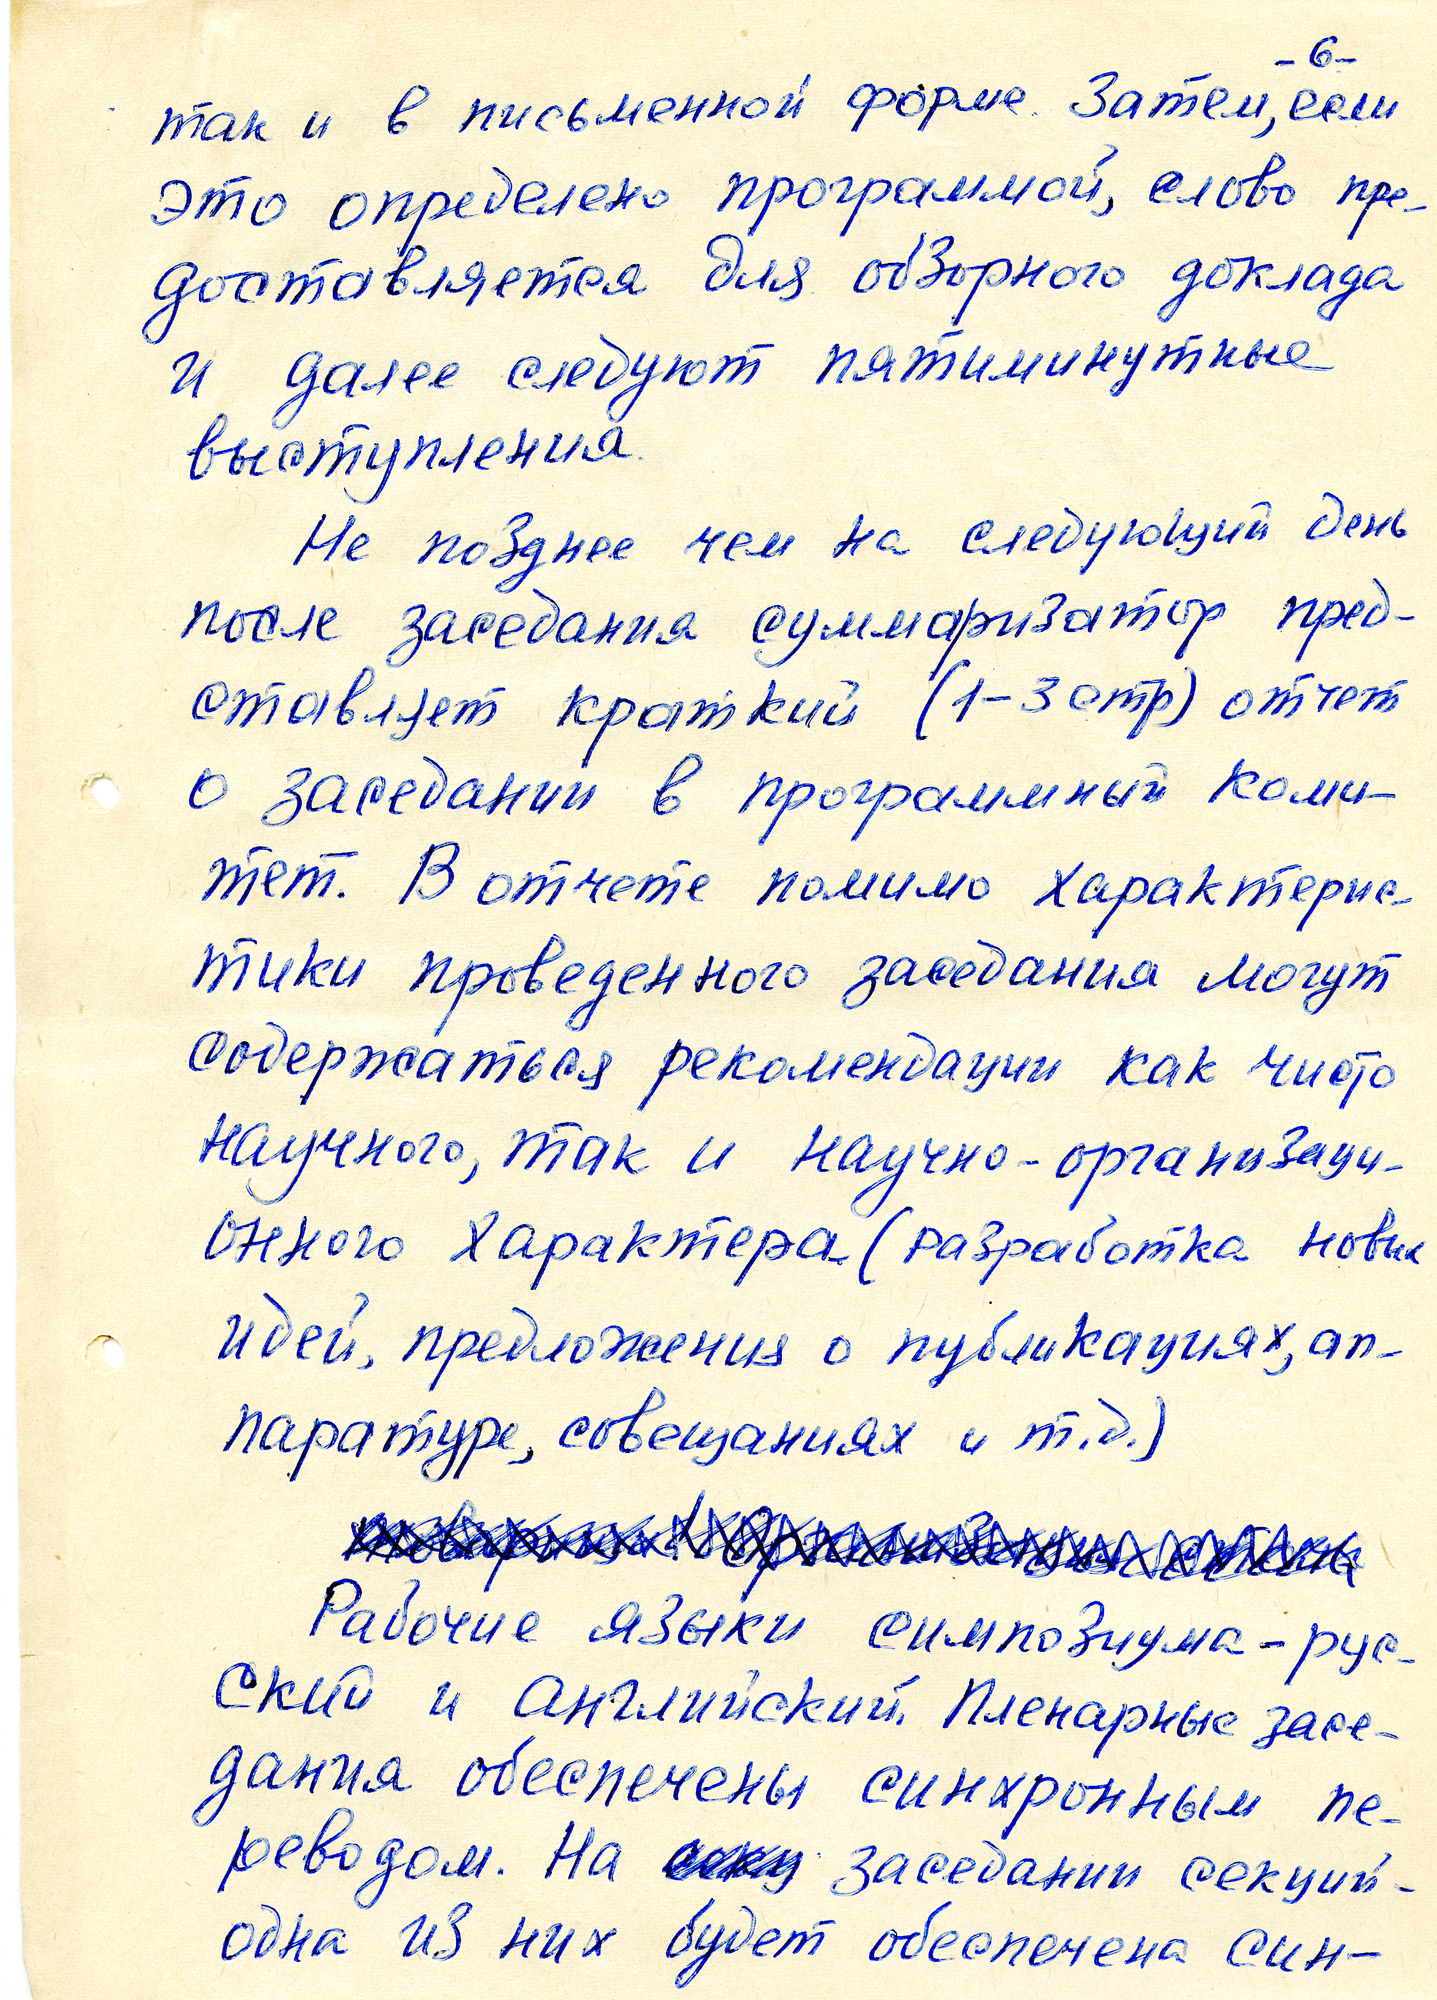 -6-
так и в письменной форме. Затем, если
это определено программой, слово пре-
доставляется для обзорного доклада
и далее следуют пятиминутные
выступления.
Не позднее чем на следующий день
после заседания суммаризатор пред-
ставляет краткий (1-3 стр) отчет
о заседании в программный коми-
тет. В отчете помимо характерис-
тики проведенного заседания могут
содержаться рекомендации как чисто
научного, так и научно-организаци-
онного характера (разработка новых
идей, предложения о публикациях, ап-
паратуре, совещаниях и т.д.)
Рабочие языки симпозиума - рус-
ский и английский. Пленарные засе-
дания обеспечены синхронным пе-
реводом. На заседании секций -
одна из них будет обеспечена син-